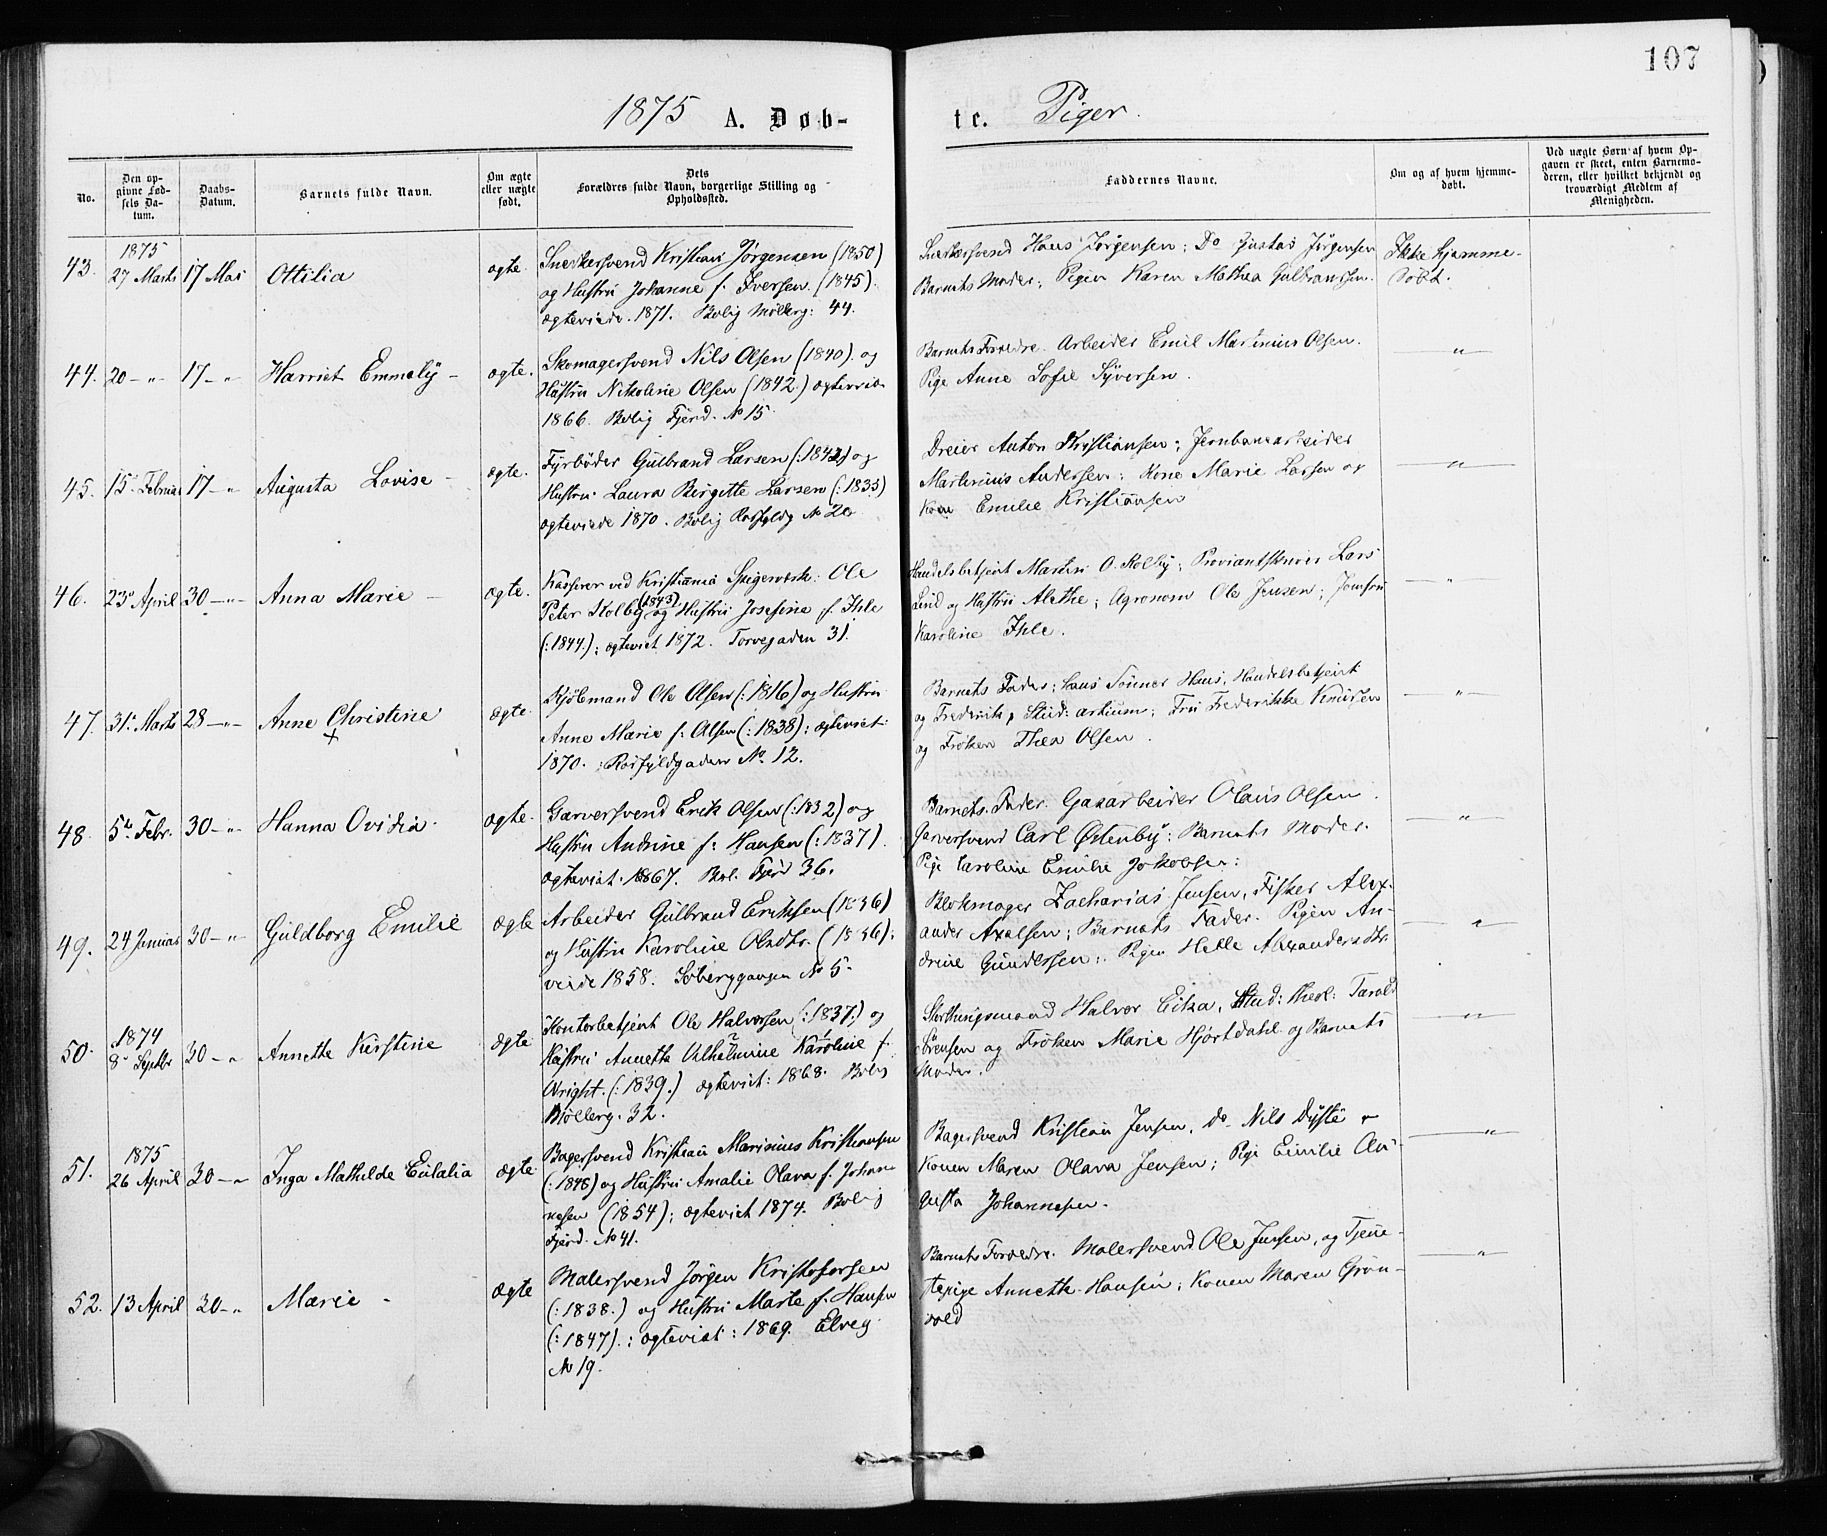 107
1875 A. Døb-
te. Piger.
No.
Den op-
givne Fød-
sels Da-
tum.
Daabs-
Datum.
Barnets fulde Navn.
Om ægte
eller uægte
født.
Dets
Forældres fulde Navn, borgerlige Stilling og
Opholdssted.
Faddernes Navne.
Om og af hvem hjemme-
døbt.
Ved uægte Børn af hvem Op-
gaven er skeet, enten Barnemo-
deren, eller hvilket bekjendt og
troværdigt Medlem af
Menigheden.
43. 1875
27 Marts 17 Mai Ottilia ægte.
Snedkersvend Kristian Jørgensen (1850)
og Hustru Johanne f. Iversen. (1845).
ægteviede. 1871. Bolig Møllerg: 44.
Snedkersvend Hans Jørgensen; Do Gustas Jørgensen
Barnets Moder; Pigen Karen Mathea Gulbrandsen.
Ikke hjemme-
døbt.
44. 20 - " - 17 - " Harriet Emmely - ægte.
Skomagersvend Nils Olsen (1840). og
Hustru Nikoline Olsen (1842) ægtevied
1866. Bolig Fjerd. No 15.
Barnets Forældre. Arbeider Emil Martinius Olsen.
Pige Anne Sofie Syversen.
"
45. 15 Februar 17 - " Augusta Lovise - ægte.
Fyrbøder Gulbrand Larsen (:1842) og
Hustru Laura Birgitte Larsen (:1835)
ægteviede 1870. Bolig Rosfyldg No 20
Dreier Anton Kristiansen; Jernbanearbeider
Martinius Andersen; Kone Marie Larsen og
Kone Emilie Kristiansen
"
46. 23 April 30 - " - Anna Marie - ægte.
Kasserer ved Kristiania Spigerværk: Ole
Peter Kolby (1843) og Hustru Josefine f. Ihle
(:1844.); ægteviet 1872. Torvegaden 31.
Handelsbetjent Martin O. Kolby; Proviantskriver Lars
Lind og Hustru Alethe; Agronom Ole Jensen; Jomfru
Karoline Ihle.
"
47. 31 Marts 28 - " - Anne Christine ægte.
+
Kjøbmand Ole Olsen (:1816) og Hustru
Anne Marie f. Olsen (:1838): ægteviet:
1870. Rosfyldgaden No. 12.
Barnets Fader; hans Sønner Hans, Handelsbetjent
og Frederik, Stud: artium; Fru Frederikke Knudsen
og Frøken Thea Olsen.
"
48. 5te Febr. 30 - " - Hanna Ovidia. ægte.
Garversvend Erik Olsen (:1832) og
Hustru Andrine f: Hansen (:1837).
ægteviet. 1867. Bol. Fjerd 36.
Barnets Fader. Gasarbeider Olaus Olsen.
Garversvend Carl Østenby: Barnets Moder.
Pige Caroline Emilie Jakobsen:
"
49. 24 Januar 30 - " - Guldborg Emilie ægte
Arbeider Gulbrand Eriksen (1836)
og Hustru Karoline Olsdtr. (1836):
viede 1858. Søberggangen No 5.
Blokmager Zacharias Jensen, Fisker Alex-
ander Axelsen; Barnets Fader. Pigen An-
drine Gundersen: Pigen Helle Alexandersdtr
"
50. 1874
8 Septbr 30 - " Annethe Kirstine ægte
Kontorbetjent Ole Halvorsen (:1837) og
Hustru Annetta Vilhelmine Karoline f.
Wright. (:1839.) ægteviet: 1868. Bolig
Møllerg. 32.
Storthingsmand Halvor Eika, Stud: theol: Tarald
Sørensen og Frøken Marie Hjortdahl og Barnets
Moder.
"
51. 1875
26 April 30 - " Inga Mathilde Eulalia ægte
Bagersvend Kristian Marinius Kristiansen
(:1848) og Hustru Amalie Olava f. Johan-
nesen (1854); ægteviet 1874. Bolig
Fjerd. No 41.
Bagersvend Kristian Jensen, Do Nils Dyste
Konen Maren Olava Jensen; Pige Emilie Au-
gusta Johannesen.
"
52. 13 April 30 - " Marie - ægte
Malersvend Jørgen Kristofersen
(:1838.) og Hustru Marte f. Hansen
(:1847).: ægteviet: 1869. Elveg
No 19.
Barnets Forældre. Malersvend Ole Jensen, og Tjene-
stepige Annethe Hansen; Konen Maren Grøn-
vold
"